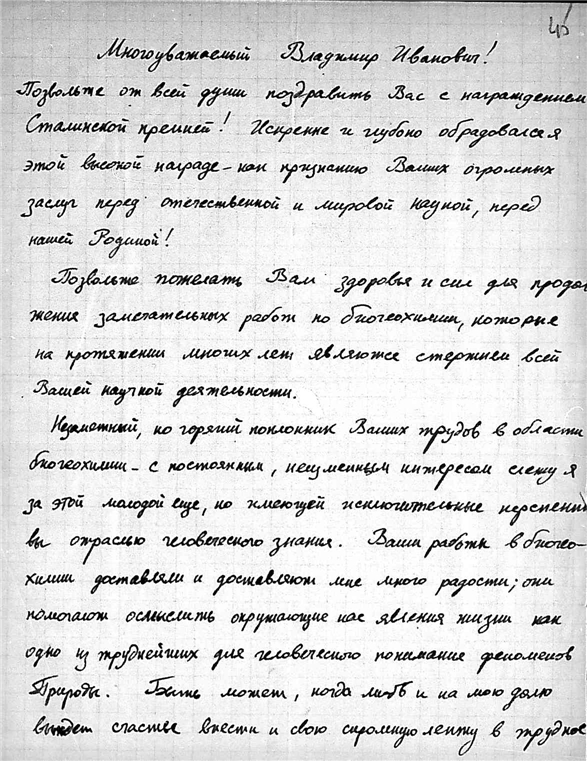 45
Многоуважаемый Владимир Иванович!
Позвольте от всей души поздравить Вас с награждением
Сталинской премией! Искренне и глубоко обрадовался я
этой высокой награде – как признанию Ваших огромных
заслуг перед отечественной и мировой наукой, перед
нашей Родиной!
Позвольте пожелать Вам здоровья и сил для продол
жения замечательных работ по биогеохимии, которые
на протяжении многих лет являются стержнем всей
Вашей научной деятельности.
Незаметный, но горячий поклонник Ваших трудов в области
биогеохимии – с постоянным, неизменным интересом слежу я
за этой молодой еще, но имеющей исключительные перспекти
вы отраслью человеческого знания. Ваши работы в биогео-
химии доставляли и доставляют мне много радости; они
помогают осмыслить окружающие нас явления жизни как
одно из труднейших для человеческого понимания феноменов
Природы. Быть может, когда либо и на мою долю
выпадет счастье внести и свою скромную лепту в трудное